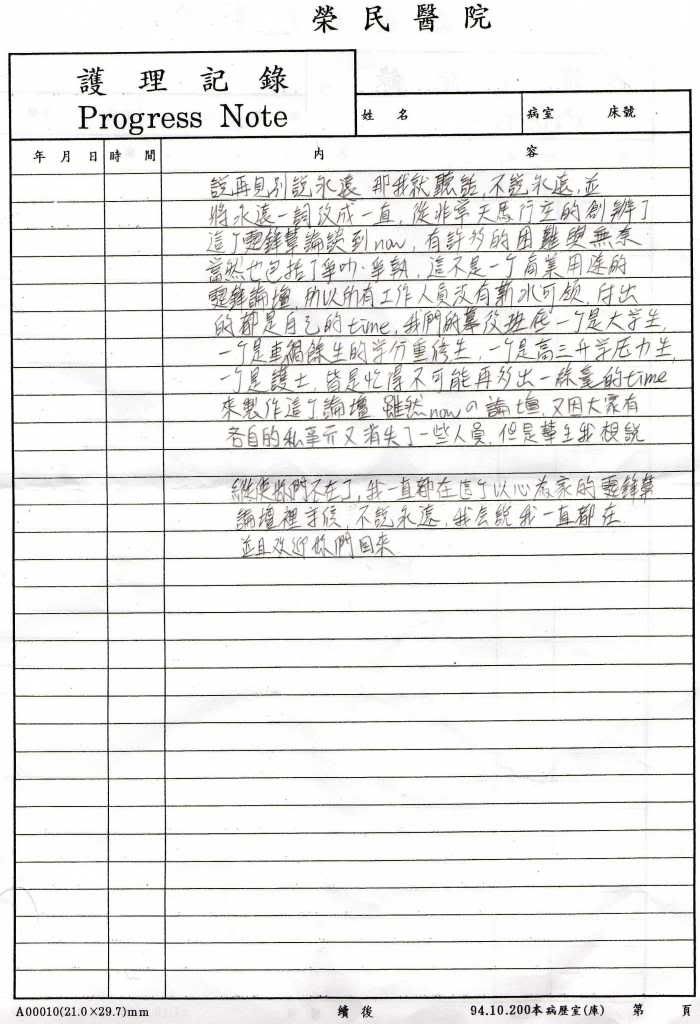 榮民醫院
護理記錄
Progress Note
姓名
病室 床號
年 月 日 時 間 內 容
說再見別說永遠 那我就聽話,不說永遠,並
將永遠一詞改成一直,從非常天馬行空的創辦了
這个靈鋒草論談到now,有許多的困難與無奈
當然也包括了爭吵.爭執,這不是一个商業用途的
靈鋒論壇,所以所有工作人員沒有薪水可領,付出
的都是自己的time,我們的幕後班底一个是大学生,
一个是車禍餘生的学分重修生,一个是高三升学压力生,
一个是護士,皆是忙得不可能再多出一絲毫的time
來製作這个論壇 雖然nowの論壇,又因大家有
各自的私事而又消失了一些人員,但是華生我想說
縱使你們不在了,我一直都在這个以心為家的靈鋒草
論壇裡守候,不說永遠,我会說我一直都在
並且欢迎你們回來
A00010(21.0×29.7)mm 續後 94.10.200本病歷室(庫) 第 頁